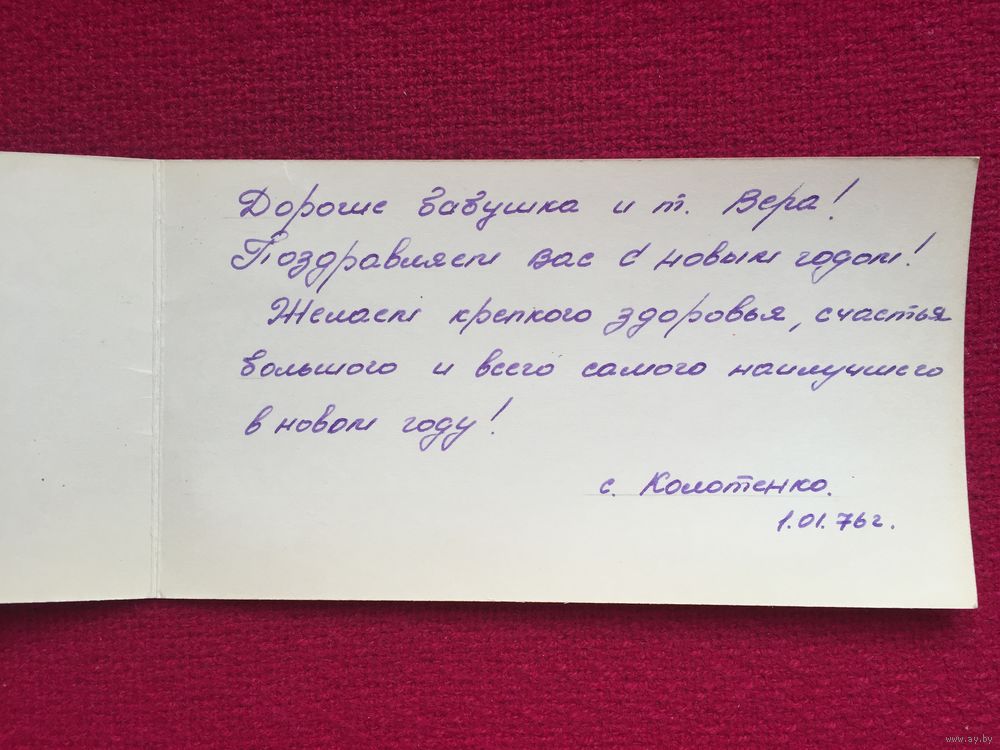 Дорогие бабушка и т. Вера!
Поздравляем вас с новым годом!
Желаем крепкого здоровья, счастья
большого и всего самого наилучшего
в новом году!
с. Колотенко.
1.01.76г.
www.ay.by